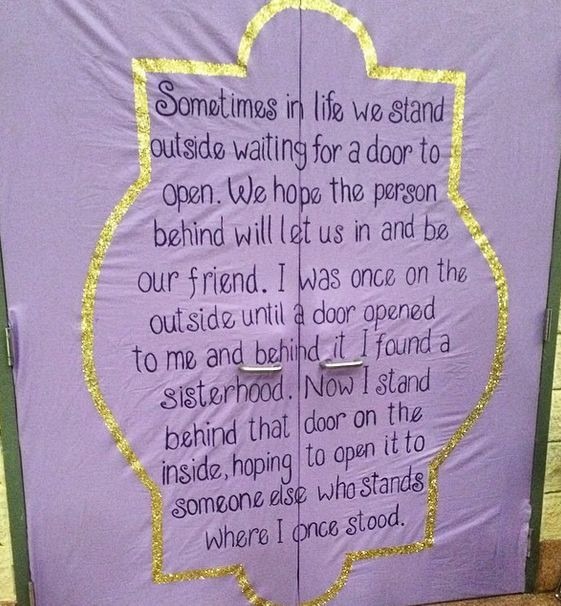 Sometimes in life we stand
outside waiting for a door to
open. We hope the person
behind will let us in and be
our friend. I was once on the
outside until a door opened
to me and behind it I found a
sisterhood. Now I stand
behind that door on the
inside, hoping to open it to
someone else who stands
where I once stood.